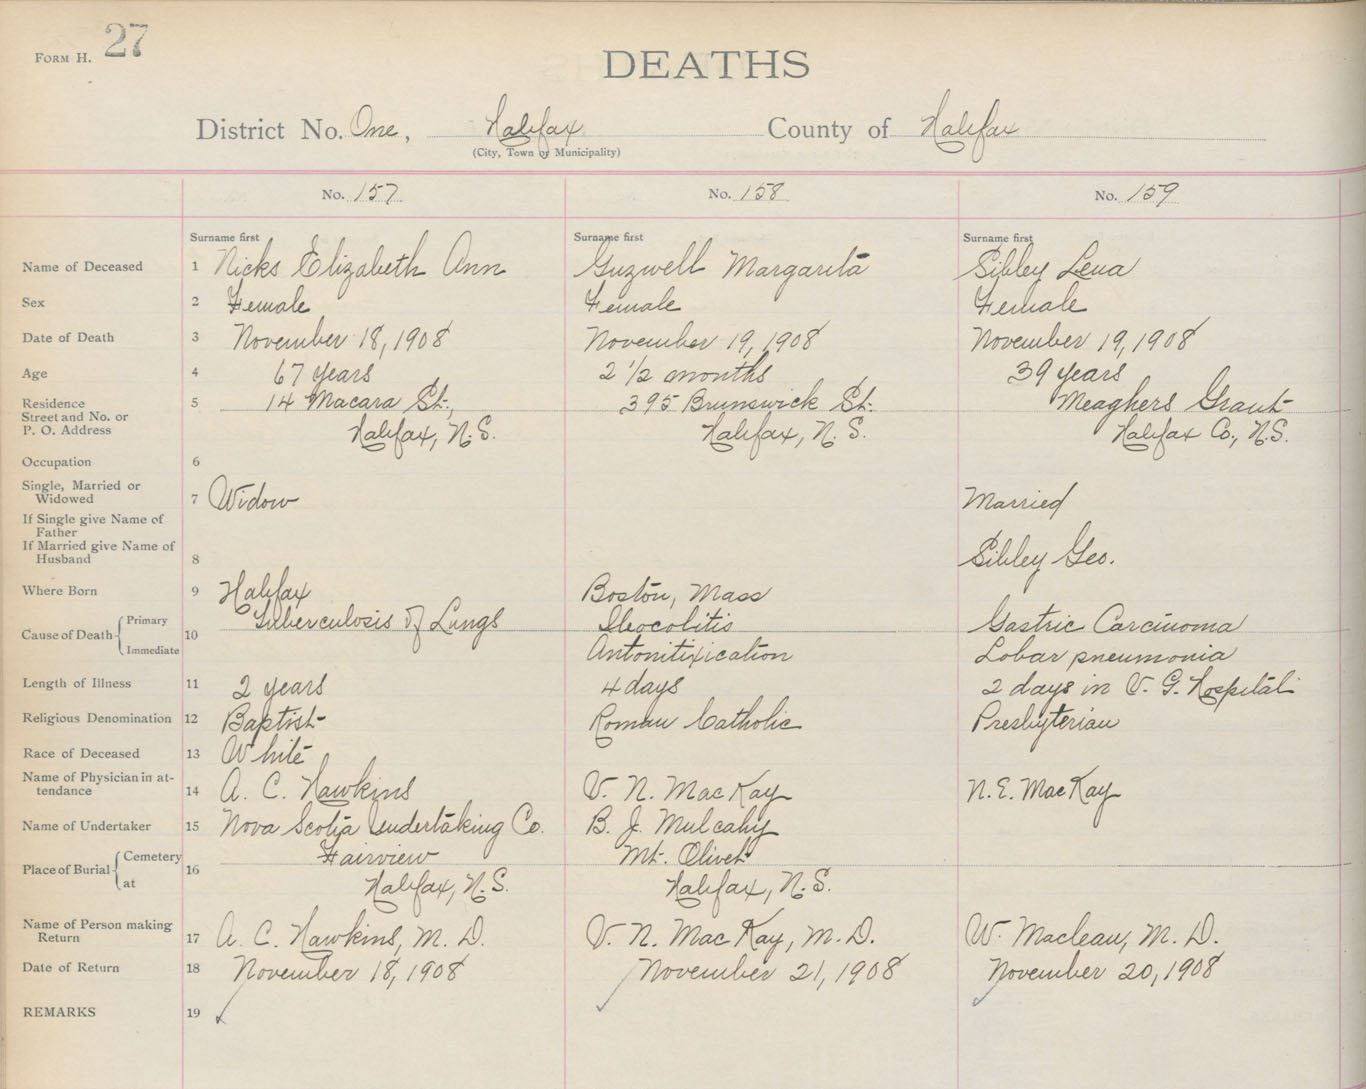 FORM H. 27
DEATHS
District No. One, Halifax County of Halifax
(City, Town or Municipality)
No. 157 No. 158 No. 159
Surname first Surname first Surname first
Name of Deceased 1 Nicks Elizabeth Ann Guzwell Margarita Sibley Lena
Sex 2 Female Female Female
Date of Death 3 November 18, 1908 November 19, 1908 November 19, 1908
Age 4 67 years 2 1/2 months 39 years
Residence 5 14 Macara St., 395 Brunswick St. Meaghers Grant
Street and No. or
P. O. Address Halifax, N.S. Halifax, N.S. Halifax Co., N.S.
Occupation 6
Single, Married or
Widowed 7 Widow Married
If Single give Name of
Father
If Married give Name of
Husband 8 Sibley Geo.
Where Born 9 Halifax Boston, Mass
Cause of Death Primary 10 Tuberculosis of Lungs Ileocolitis Gastric Carcinoma
Immediate Antonitixication Lobar pneumonia
Length of Illness 11 2 years 4 days 2 days in V. G. Hospital
Religious Denomination 12 Baptist Roman Catholic Presbyterian
Race of Deceased 13 White
Name of Physician in at-
tendance 14 A. C. Hawkins V. N. MacKay N. E. MacKay
Name of Undertaker 15 Nova Scotia Undertaking Co. B. J. Mulcahy
Place of Burial Cemetery 16 Fairview Mt. Olivet
at Halifax, N.S. Halifax, N.S.
Name of Person making
Return 17 A. C. Hawkins, M. D. V. N. MacKay, M. D. W. Maclean, M. D.
Date of Return 18 November 18, 1908 November 21, 1908 November 20, 1908
REMARKS 19